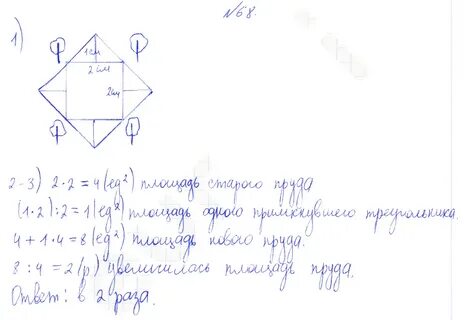 №68.
1)
1 см
2 см
2см
2-3) 2·2=4(ед²) площадь старого пруда
(1·2):2=1(ед²) площадь одного примкнувшего треугольника.
4+1·4=8(ед²) площадь нового пруда.
8:4=2(р) увеличилась площадь пруда.
Ответ: в 2 раза.